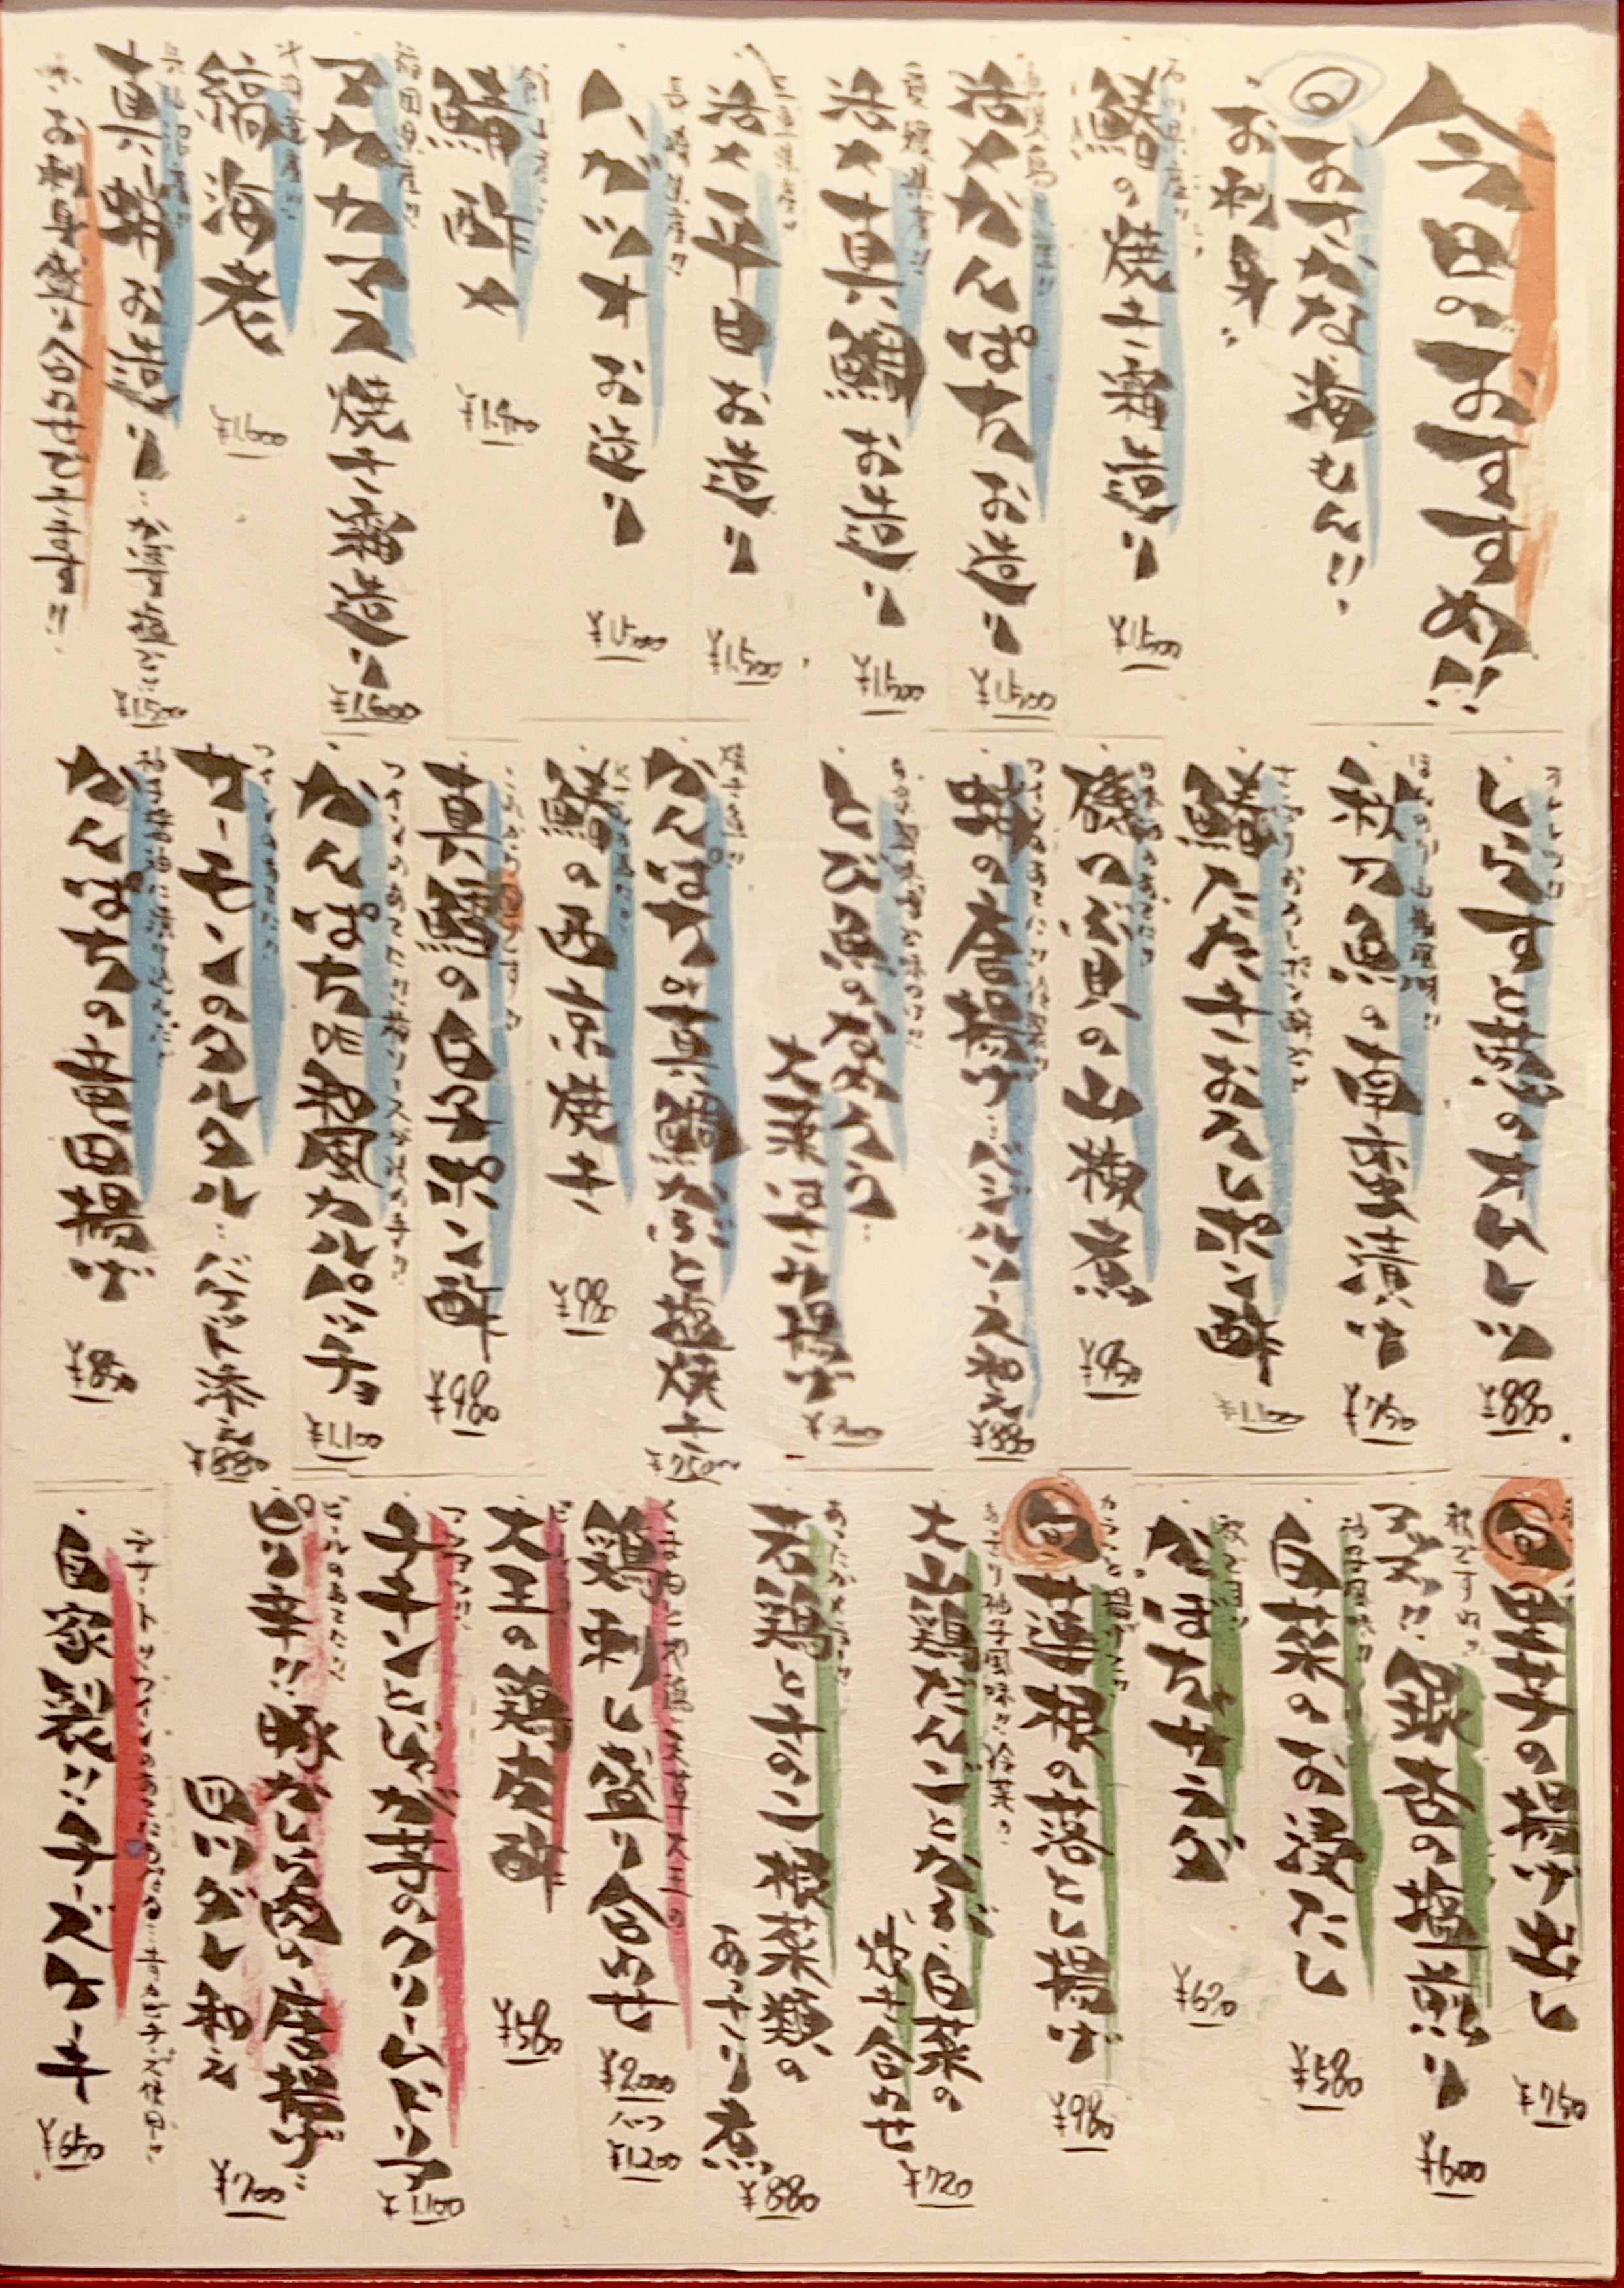 今日のおすすめ!!
おさかな海もん!!
お刺身
鰆の焼き霜造り
¥1,500
活〆かんぱちお造り
¥1,500
活〆真鯛お造り
¥1,500
活〆平目お造り
¥1,500
長崎県産!!
ハガツオお造り
¥1,500
鯖酢〆
福田県産!!
アカカマス焼き霜造り
¥1,600
縞海老
¥1,600
真蛸お造り
¥1,500
お刺身盛り合わせできます!!
しらすと葱のオムレツ
¥880
秋刀魚の南蛮漬け
¥750
鰆たたきおろしポン酢
¥1,100
磯つぶ貝の山椒煮
¥950
蛸の唐揚げ…バジルソース和え
¥880
とび魚のなめろう…
大葉はさみ揚げ
かんぱちor真鯛かぶと塩焼き
鰆の西京焼き
¥980
真鱈の白子ポン酢
¥980
かんぱちor和風カルパッチョ
¥1,100
サーモンのタルタル…バゲット添え
¥880
かんぱちの竜田揚げ
¥850
里芋の揚げ出し
¥750
秋ですねぇ
アツアツ!!銀杏の塩煎り
¥600
柚子風味!!
白菜のお浸だし
¥580
かぼちゃサラダ
¥620
蓮根の落とし揚げ
¥980
大山鶏だんごとかぶ、白菜の
炊き合わせ
¥720
若鶏ときのこ根菜類の
あっさり煮
¥880
鶏刺し盛り合わせ
¥2,000
ハーフ
¥1,200
大王の鶏皮酢
¥580
アツアツ!!
チキンとじゃが芋のクリームドリア
¥1,100
ビールのあてに!!
ピリ辛!!豚かしら肉の唐揚げ…
四川ダレ和え
¥700
自家製!!チーズケーキ
¥650